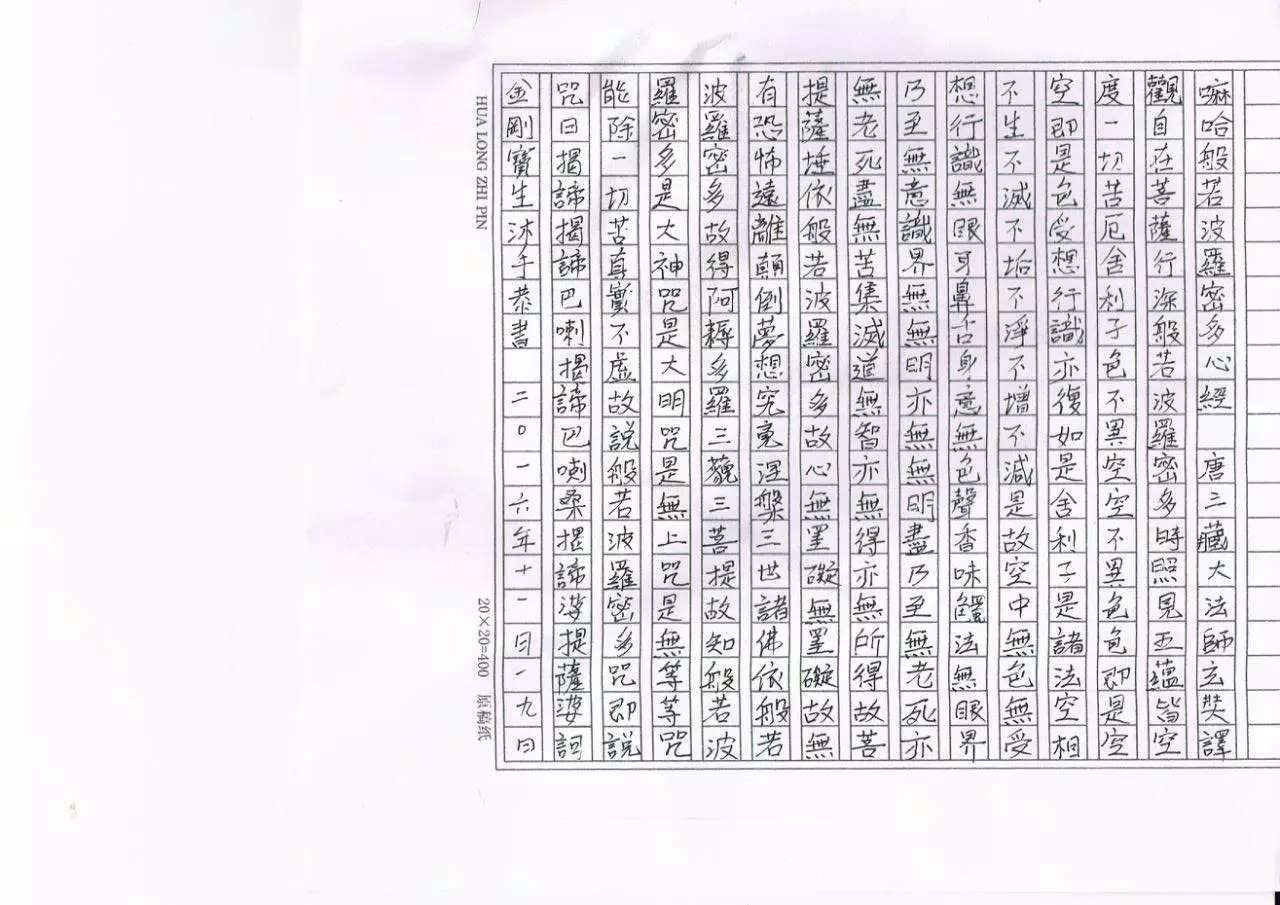 嘛哈般若波羅密多心經 唐三藏大法師玄奘譯
觀自在菩薩行深般若波羅密多時照見五蘊皆空
度一切苦厄舍利子色不異空空不異色色即是空
空即是色受想行識亦復如是舍利子是諸法空相
不生不滅不垢不淨不增不減是故空中無色無受
想行識無眼耳鼻舌身意無色聲香味觸法無眼界
乃至無意識界無無明亦無無明盡乃至無老死亦
無老死盡無苦集滅道無智亦無得亦無所得故菩
提薩埵依般若波羅密多故心無罣礙無罣礙故無
有恐怖遠離顛倒夢想究竟涅槃三世諸佛依般若
波羅密多故得阿耨多羅三藐三菩提故知般若波
羅密多是大神咒是大明咒是無上咒是無等等咒
能除一切苦真實不虛故說般若波羅密多咒即說
咒曰揭諦揭諦巴喇揭諦巴喇桑揭諦婆提薩婆訶
金剛寶生沐手恭書 二〇一六年十一月一九日
HUA LONG ZHI PIN 20×20=400 原稿纸